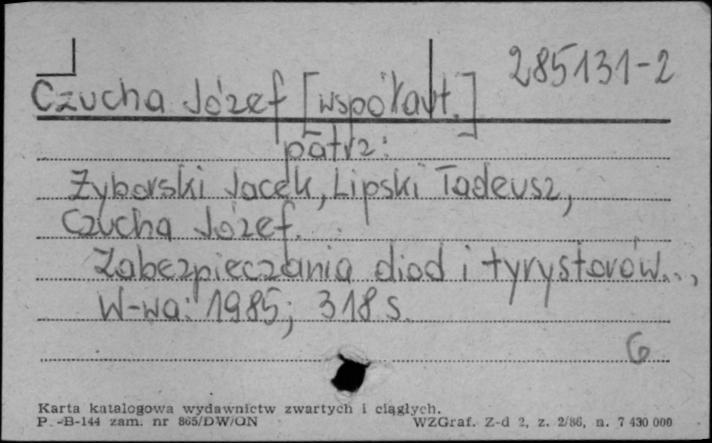 285131-2
Czucha Józef [współaut.]
patrz:
Żyborski Jacek, Lipski Tadeusz,
Czucha Józef.
Zabezpieczania diod i tyrystorów...,
W-wa: 1985; 318 s.
6
Karta katalogowa wydawnictw zwartych i ciągłych.
P.-B-144 zam. nr 865/DW/ON WZGraf. Z-d 2, z. 2/86, n. 7 430 000